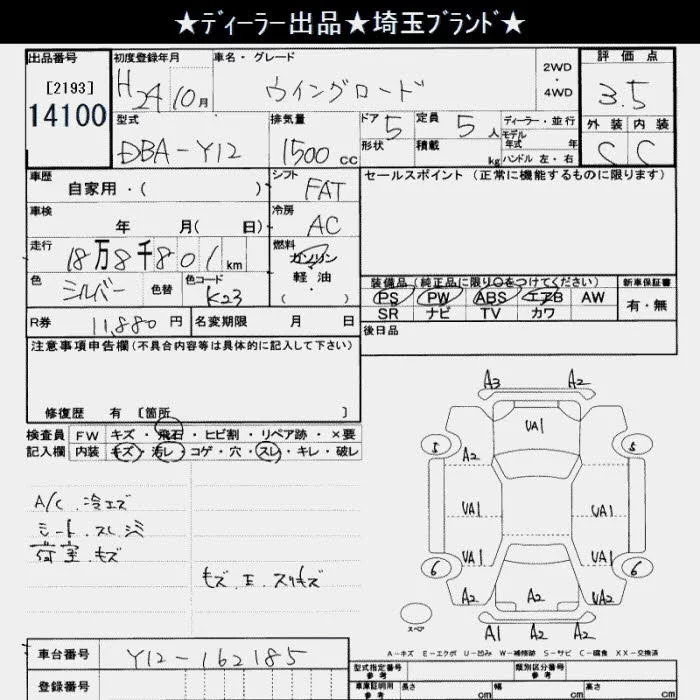 ★ディーラー出品★埼玉ブランド★
出品番号
[2193]
14100
初度登録年月
H24 10月
車名・グレード
ウイングロード
2WD
・
4WD
評価点
3.5
外装 内装
C C
型式
DBA-Y12
排気量
1500 cc
ドア 5
形状
定員 5 人
積載 kg
ディーラー・並行
モデル
年式 年
ハンドル 左・右
車歴
自家用・( )
シフト
FAT
セールスポイント (正常に機能するものに限ります)
車検
年 月( 日)
冷房
AC
走行
18万8千801km
燃料
ガソリン
軽油
( ・ )
色
シルバー
色替
色コード
K23
装備品(純正品に限り○をつけてください)
PS PW ABS エアB AW
SR ナビ TV カワ
新車保証書
有・無
R券
11,880 円
名変期限 月 日
後日品
注意事項申告欄(不具合内容等は具体的に記入して下さい)
修復歴 有 [箇所 ]
検査員
記入欄
FW キズ・飛石・ヒビ割・リペア跡・×要
内装 キズ・汚レ・コゲ・穴・スレ・キレ・破レ
A/C 冷エズ
シート スレ
荷室 キズ
A3 A2
UA1
5 5
A2
UA1 UA1
UA1 UA1
6 6
A2 A2 A2
A1 A2
スペア
A-キズ E-エクボ U-凹み W-補修跡 S-サビ C-腐食 XX-交換済
車台番号
Y12-162185
登録番号
型式指定番号
参考
類別区分番号
参考
車庫証明用
参考
長さ cm
幅 cm
高さ cm